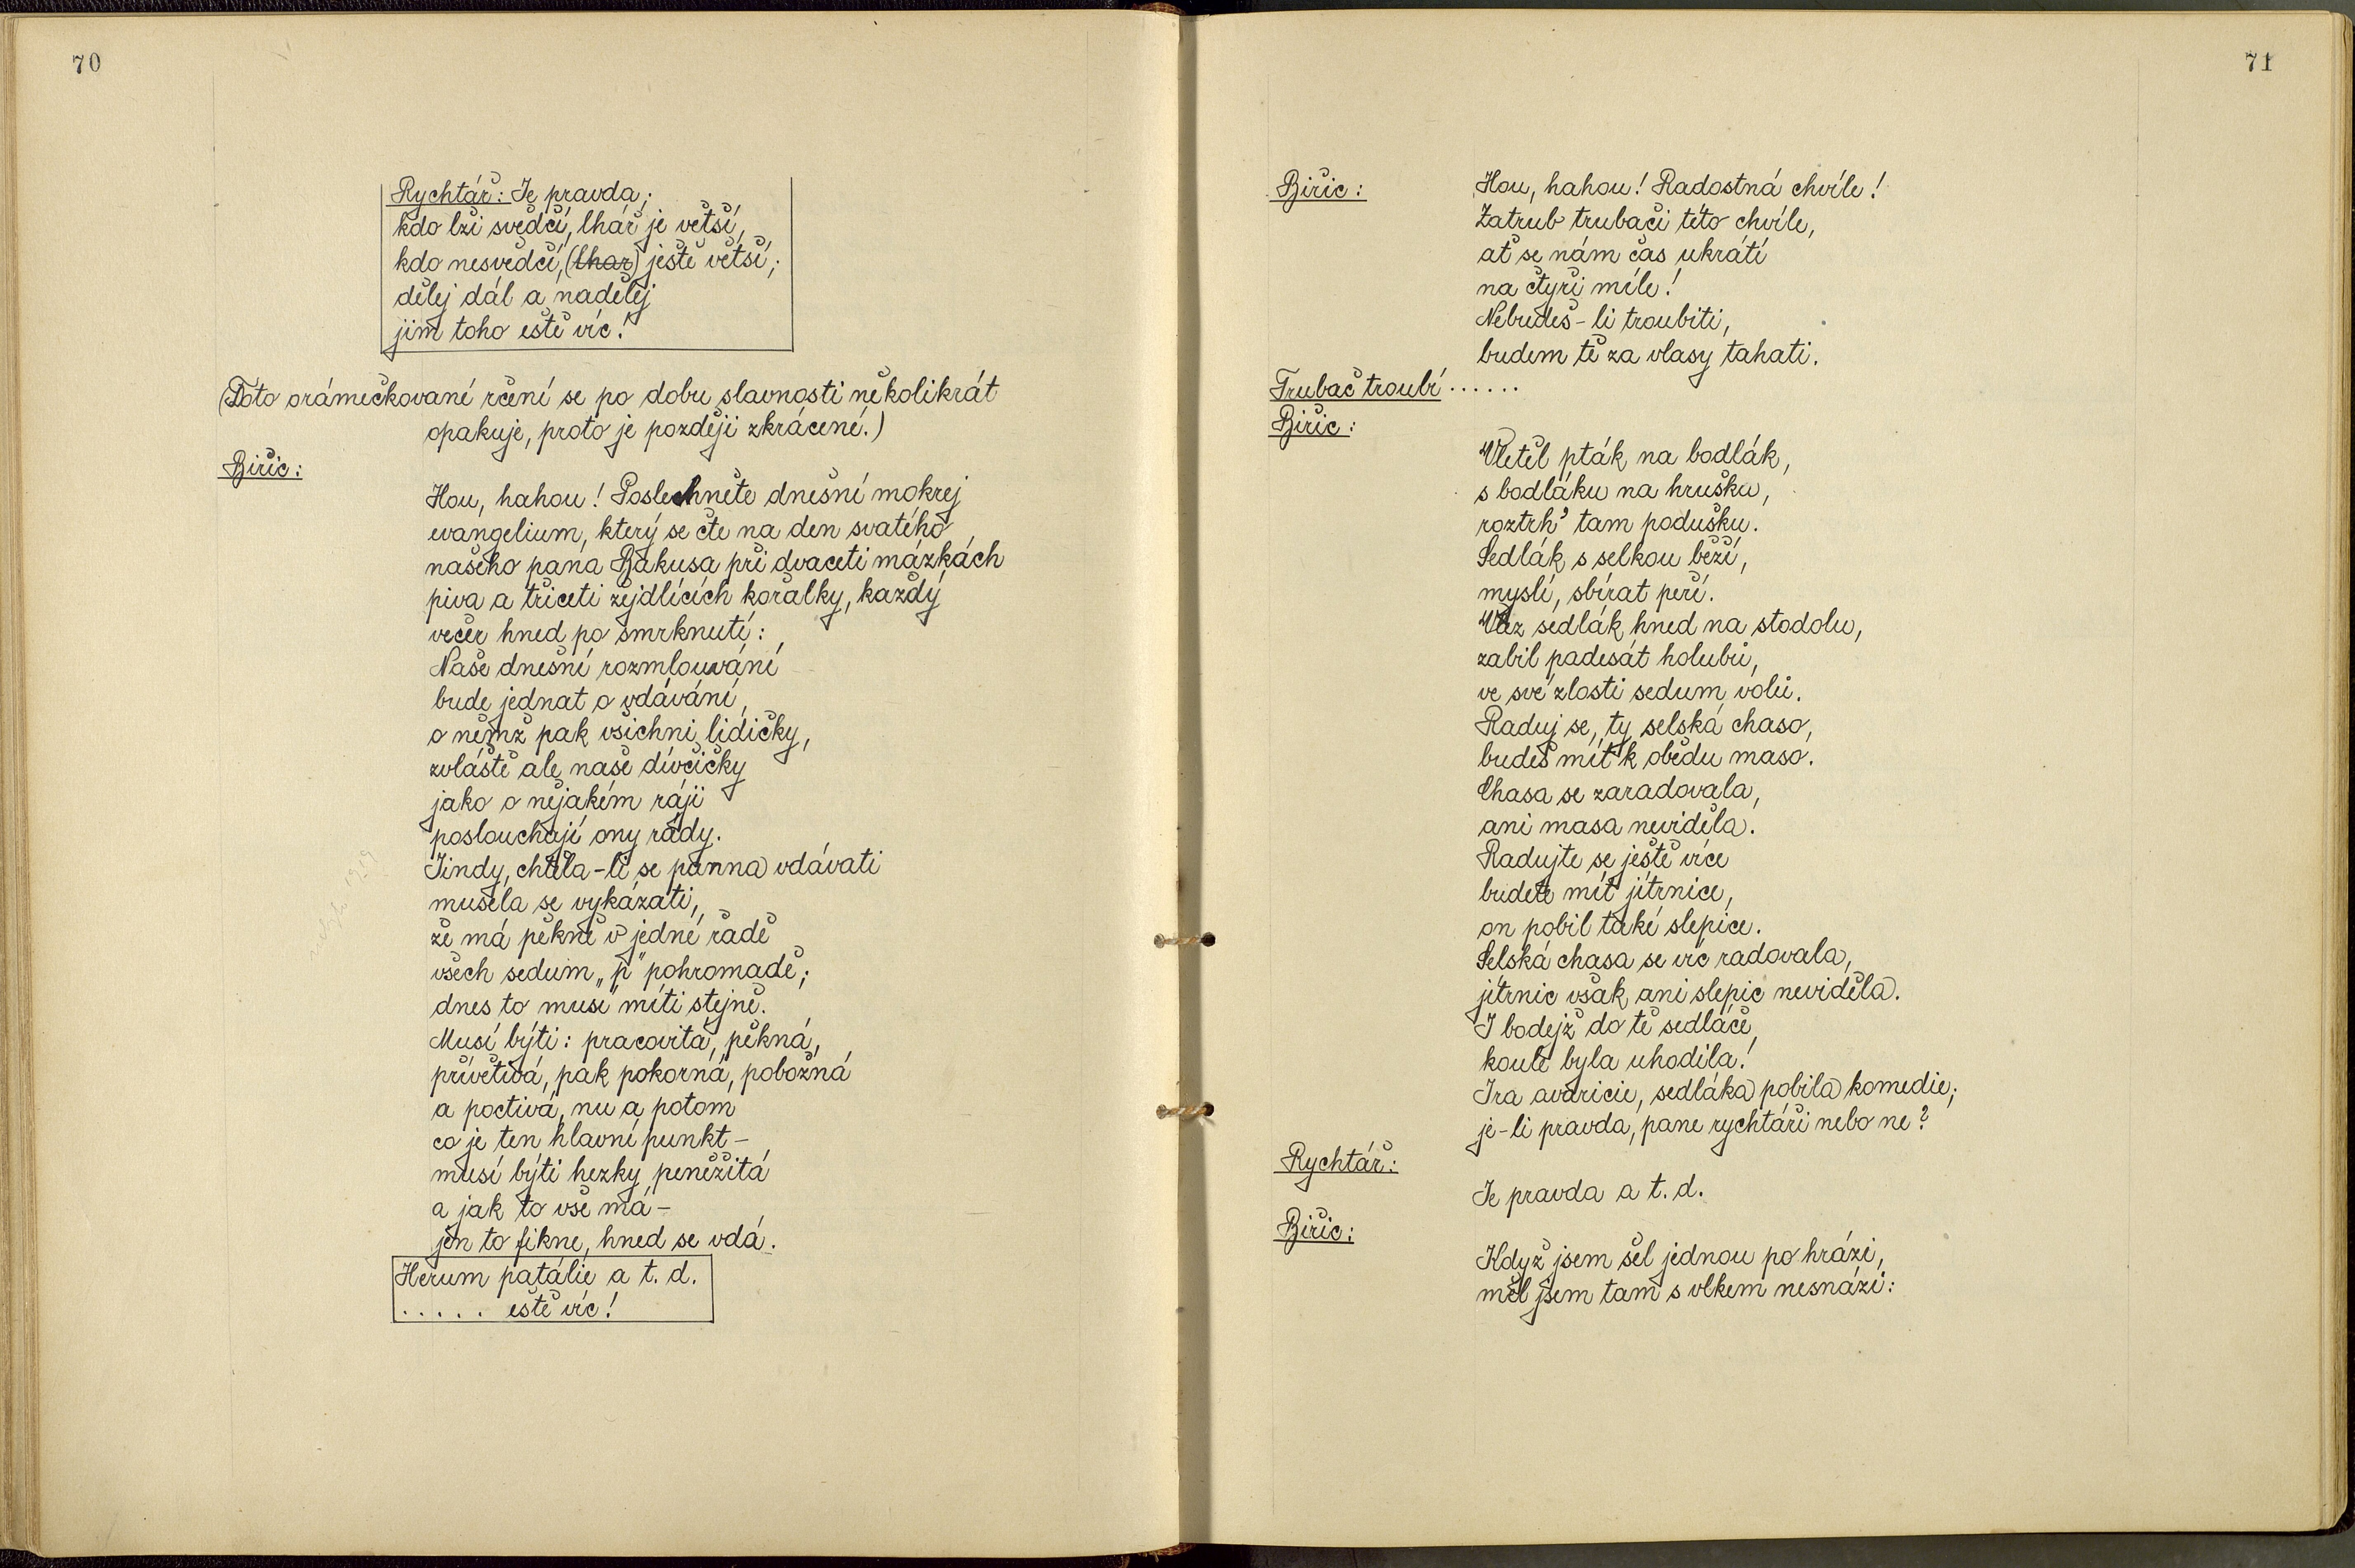 70
Rychtář: Je pravda;
kdo lži svědčí, lhář je větší,
kdo nesvědčí, (lhar) ještě větší;
dělej dál a nadělej
jim toho eště víc!
(Toto orámečkované rčení se po dobu slavnosti několikrát
opakuje, proto je později zkrácené.)
Biřic:
Hou, hahou! Poslechněte dnešní mokrej
evangelium, který se čte na den svatého
našeho pana Bakusa při dvaceti mázkách
piva a třiceti žejdlících kořalky, každý
večer hned po smrknutí:
Naše dnešní rozmlouvání
bude jednat o vdávání,
o němž pak všichni lidičky,
zvláště ale naše dívčičky
jako o nějakém ráji
poslouchají ony rády.
Jindy, chtěla-li se panna vdávati
musela se vykázati,
že má pěkně v jedné řadě
všech sedum „p" pohromadě;
dnes to musí míti stejně.
Musí býti: pracovitá, pěkná,
přívětivá, pak pokorná, pobožná
a poctivá, nu a potom
co je ten hlavní punkt-
musí býti hezky peněžitá
a jak to vše má-
jen to fikne, hned se vdá.
Herum patálie a t. d.
..... eště víc!
71
Biřic:
Hou, hahou! Radostná chvíle!
Zatrub trubači této chvíle,
ať se nám čas ukrátí
na čtyři míle!
Nebudeš-li troubiti,
budem tě za vlasy tahati.
Trubač troubí ......
Biřic:
Vletěl pták na bodlák,
s bodláku na hrušku,
roztrh' tam podušku.
Sedlák s selkou běží,
myslí, sbírat peří.
Vlez sedlák hned na stodolu,
zabil padesát holubů,
ve své zlosti sedum volů.
Raduj se, ty selská chaso,
budeš mít k obědu maso.
Chasa se zaradovala,
ani masa neviděla.
Radujte se ještě více
budete mít jitrnice,
on pobil také slepice.
Selská chasa se víc radovala,
jitrnic však ani slepic neviděla.
I bodejž do tě sedláče,
koule byla uhodila!
Ira avaricie, sedláka pobila komedie;
je-li pravda, pane rychtáři nebo ne?
Rychtář:
Je pravda a t. d.
Biřic:
Když jsem šel jednou po hrázi,
měl jsem tam s vlkem nesnázi: